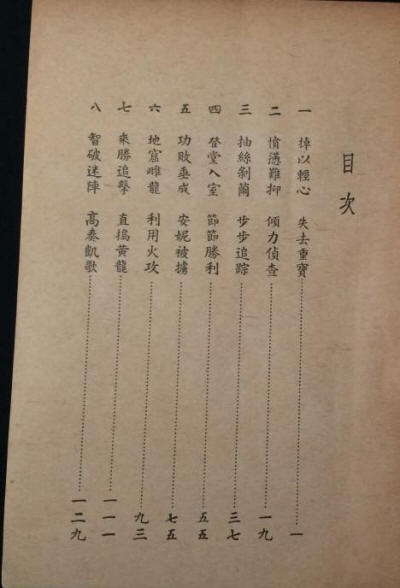 目次
一 掉以輕心 失去重寶 一
二 憤懣難抑 傾力偵查 一九
三 抽絲剝繭 步步追踪 三七
四 登堂入室 節節勝利 五五
五 功敗垂成 安妮被擄 七五
六 地窟雌龍 利用火攻 九三
七 乘勝追擊 直搗黃龍 一一一
八 智破迷陣 高奏凱歌 一二九